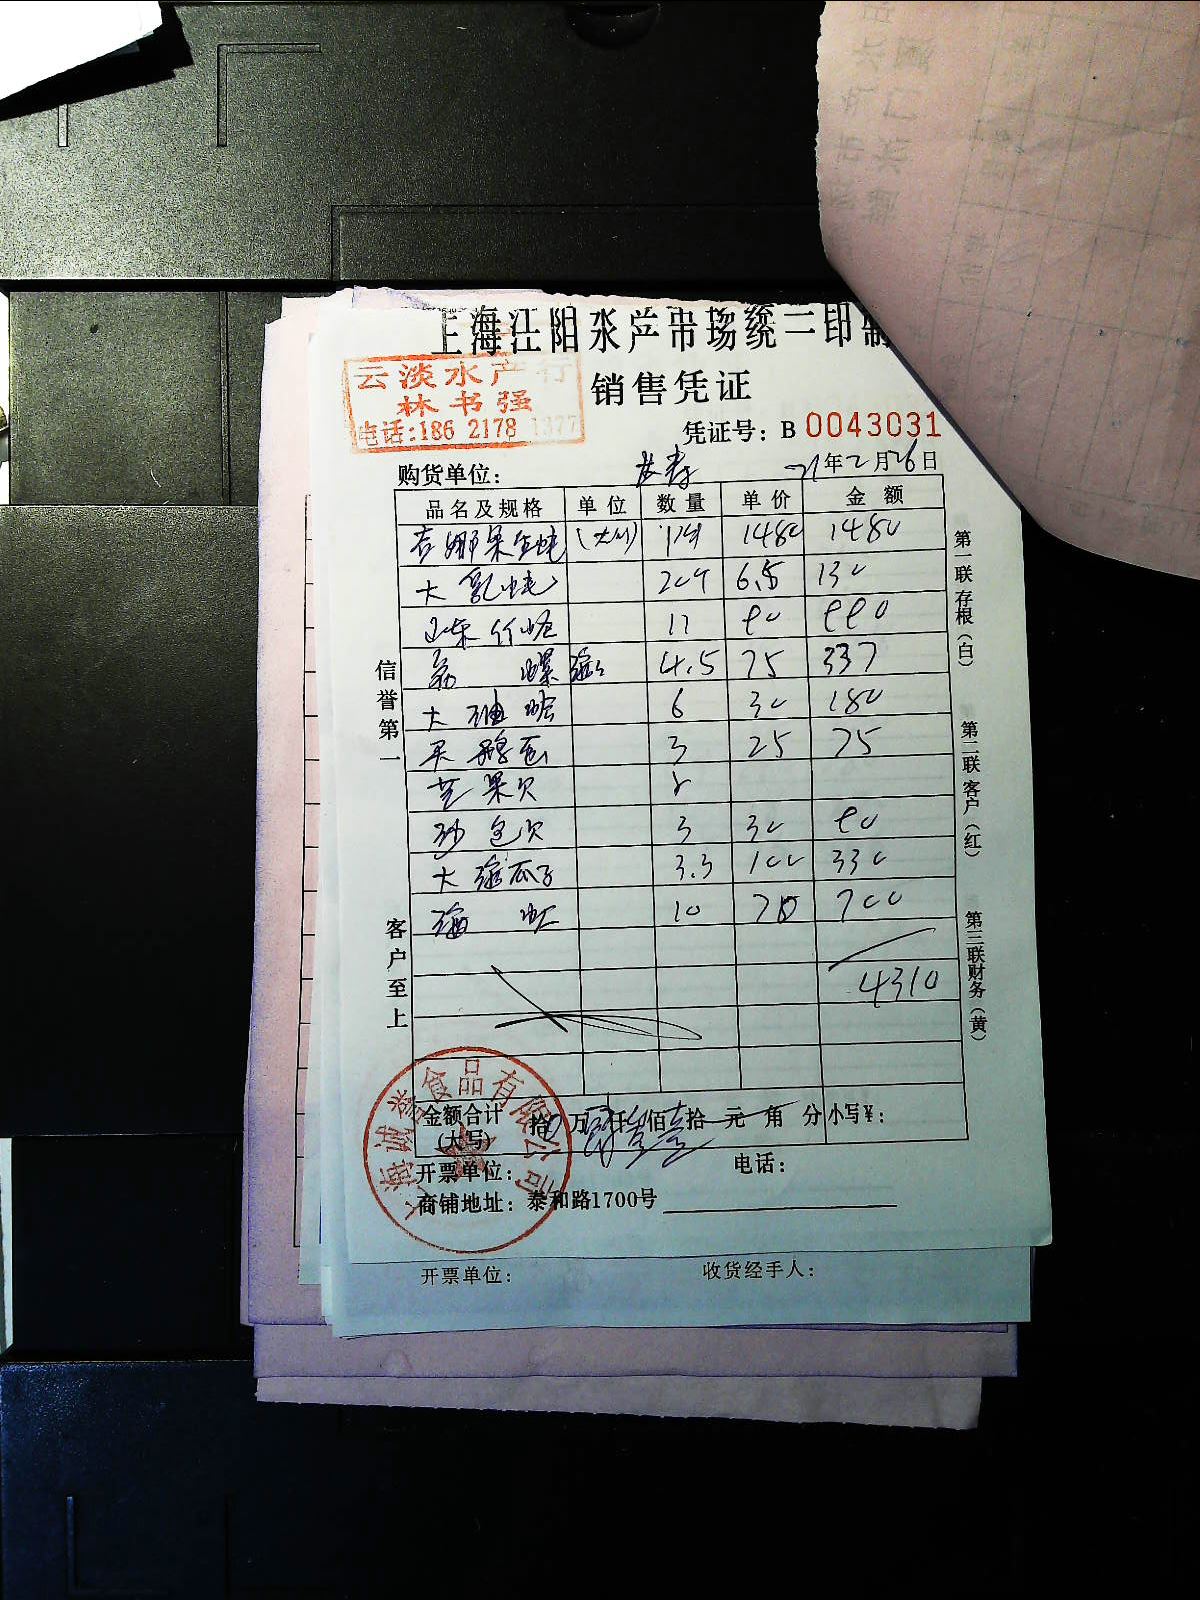 上海江阳水产市场统一印制
云淡水产行
林书强
电话:186 2178 1377
销售凭证
凭证号: B 0043031
购货单位:
21年2月26日
品名及规格 单位 数量 单价 金额
吉娜果生蚝 1480 1480
大乳蚝 6.5 130
山东竹蛏 11 80 880
螺 4.5 75 337
大 6 30 180
3 25 75
芒果贝
沙包贝 3 30 90
大海瓜子 3.3 100 330
海虹 10 70 700
4310
金额合计
(大写)
拾 万 仟 佰 拾 元 角 分 小写¥:
开票单位:
电话:
商铺地址: 泰和路1700号
信誉第一
客户至上
第一联存根(白)
第二联客户(红)
第三联财务(黄)
上海诚誉食品有限公司
开票单位:
收货经手人: